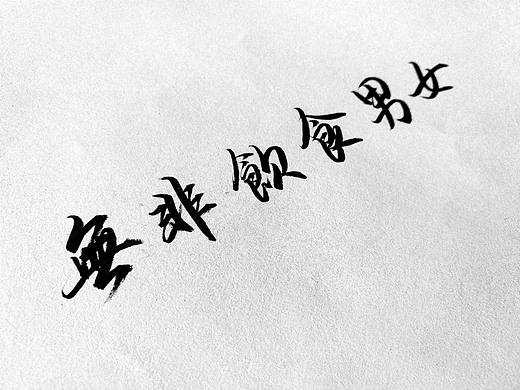 無非飲食男女